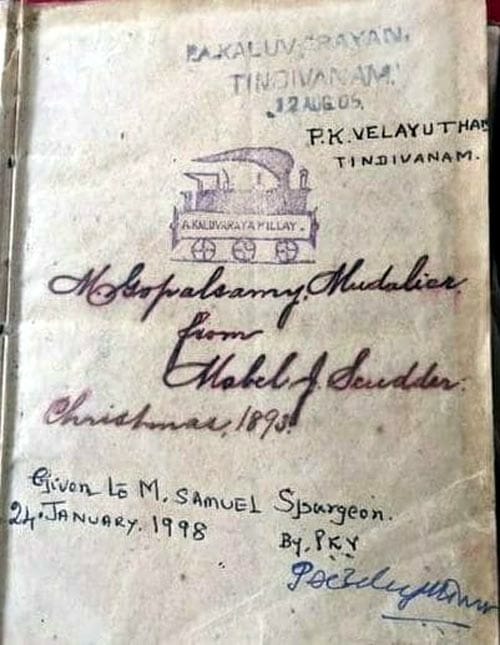 P.A.KALUVARAYAN,
TINDIVANAM.
12 AUG 05.
P.K.VELAYUTHAN
TINDIVANAM.
A.KALUVARAYA PILLAY.
M Gopalsamy Mudalier
from
Mabel J. Scudder.
Christmas, 1893.
Given to M. SAMUEL Spurgeon.
24. JANUARY. 1998
By, PKV